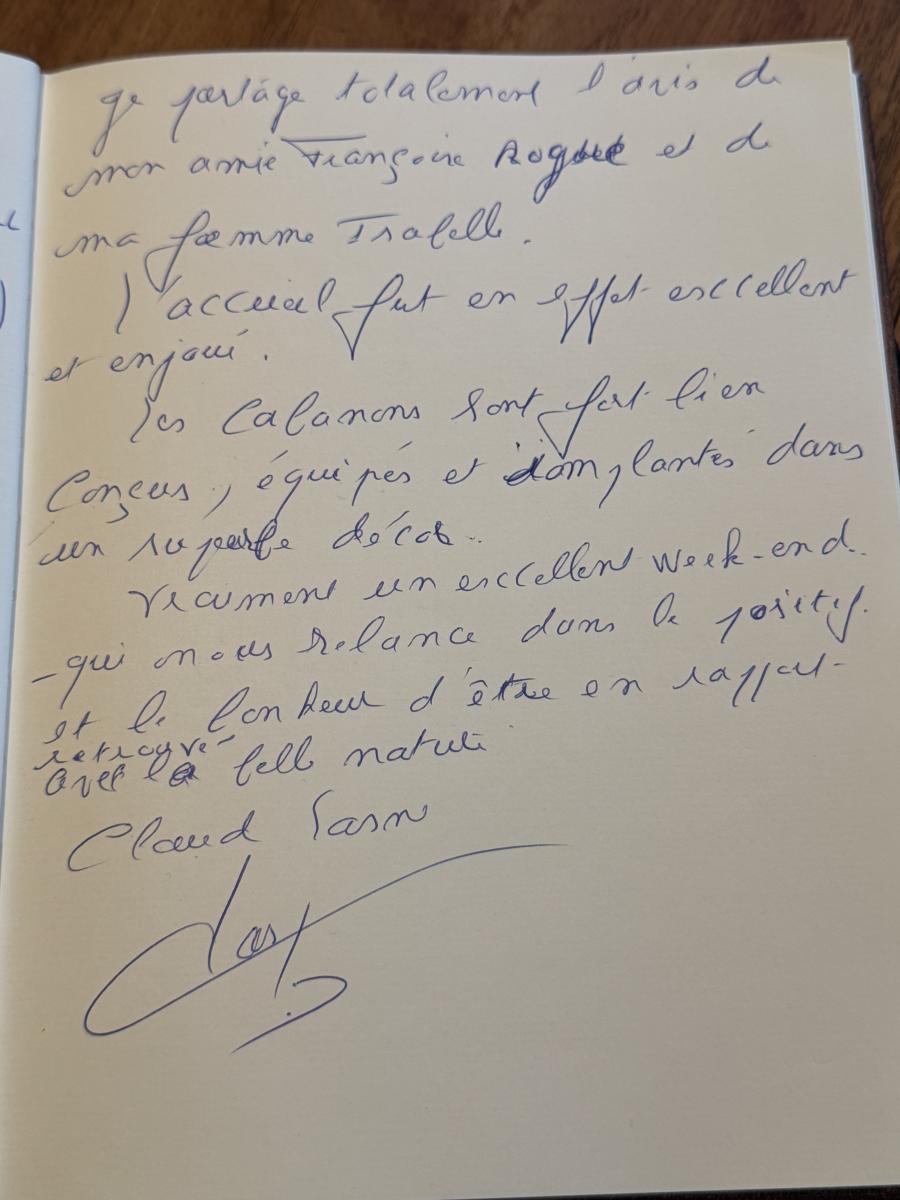 Je partage totalement l'avis de
mon amie Françoise et de
ma femme Isabelle.
l'accueil fut en effet excellent
et enjoué.
les cabanons sont fort bien
conçus, équipés et implantés dans
un superbe décor.
Vraiment un excellent week-end.
- qui nous relance dans le positif.
et le bonheur d'être en rapport
retrouvé
avec la belle nature
Claud